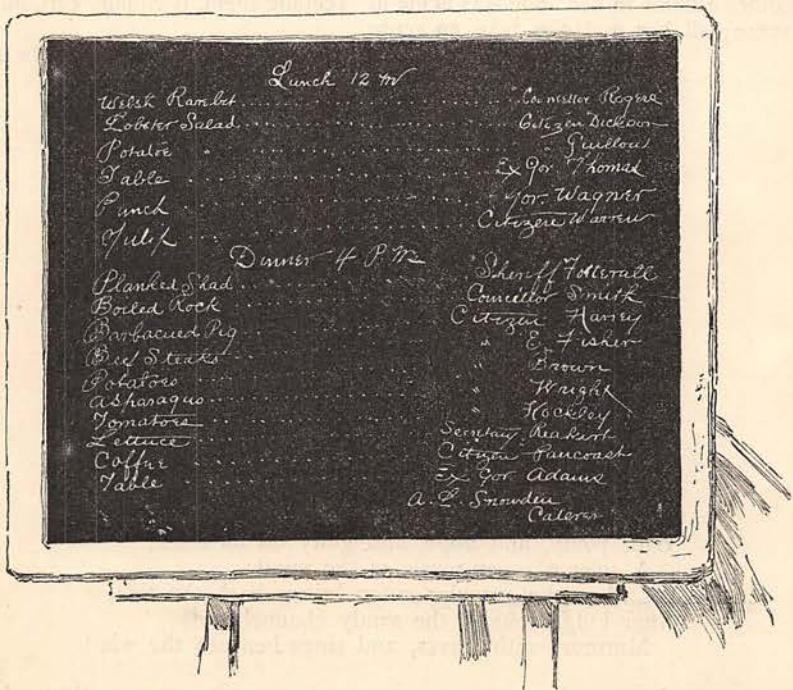 Lunch 12 M
Welsh Rarebit Councillor Rogers
Lobster Salad Citizen Dickson
Potatoe " " Guillou
Table Ex Gov. Thomas
Punch Gov. Wagner
Julip Citizen Warren
Dinner 4 P M
Planked Shad Sheriff Fotterall
Boiled Rock Councillor Smith
Barbacued Pig Citizen Harvey
Beef Steaks " E. Fisher
Potatoes " Brown
Asparagus " Wright
Tomatoes " Hockley
Lettuce Secretary Reakirt
Coffee Citizen Pancoast
Table Ex Gov Adams
A. L. Snowden
Caterer